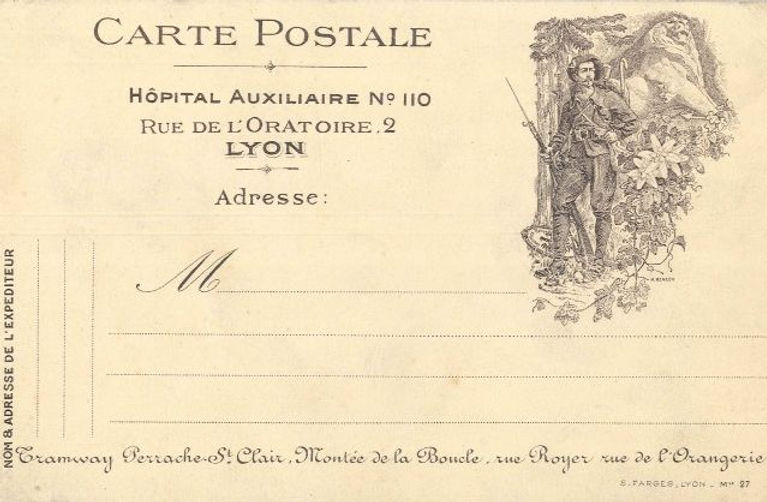 CARTE POSTALE
HÔPITAL AUXILIAIRE Nº 110
RUE DE L'ORATOIRE. 2
LYON
Adresse:
M
NOM & ADRESSE DE L'EXPEDITEUR
Tramway Perrache-St Clair, Montée de la Boucle, rue Royer rue de l'Orangerie
S. FARGES, LYON - Mᵐ 27